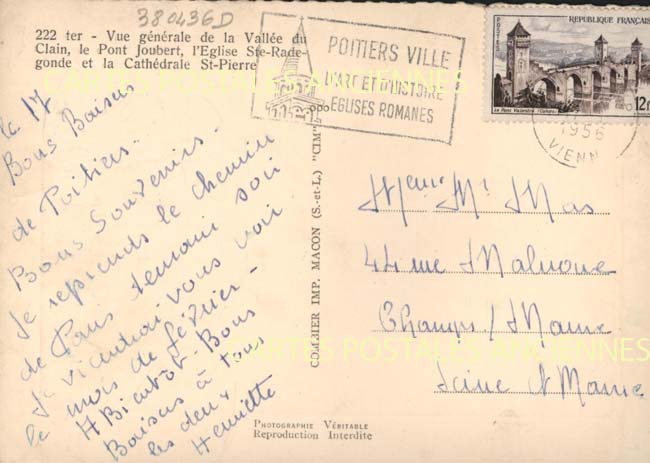 380436D
222 ter - Vue générale de la Vallée du
Clain, le Pont Joubert, l'Eglise Ste-Rade-
gonde et la Cathédrale St-Pierre
POITIERS VILLE
D'ART ET D'HISTOIRE
EGLISES ROMANES
POSTES
REPUBLIQUE FRANÇAISE
Le Pont Valentré (Cahors)
12f
1956
VIENN
CARTES POSTALES ANCIENNES
le 17
Bons Baisers
de Poitiers.
Bons Souvenirs.
Je reprends le chemin
de Paris demain soir
Je viendrai vous voir
le mois de février -
A Bientôt. Bons
Baisers à tous
les deux
Henriette
COLLIER IMP. MACON (S.-et-L.) "CIM"
Mr Mas
44 rue
Champs / Marne
Seine et Marne
CARTES POSTALES ANCIENNES
PHOTOGRAPHIE VÉRITABLE
Reproduction Interdite